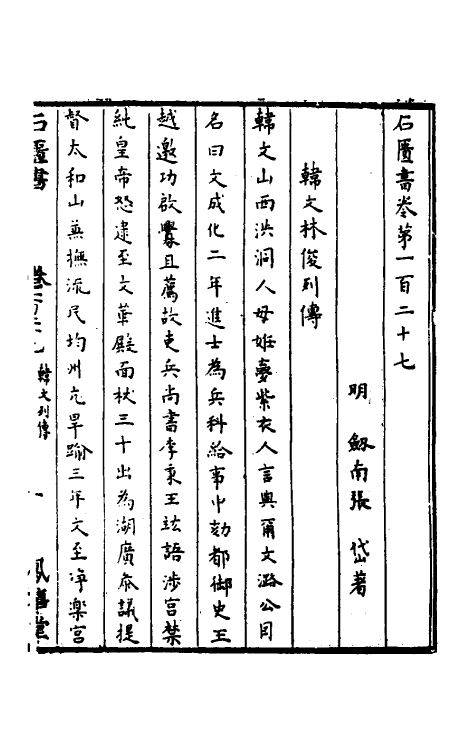 石匱書卷第一百二十七
明 劔南張 岱著
韓文林俊列傳
韓文山西洪洞人母姙夢紫衣人言與爾文潞公因
名曰文成化二年進士為兵科給事中劾都御史王
越邀功啟釁且薦故吏兵尚書李秉王竑語涉宫禁
純皇帝怒逮至文華殿面杖三十出為湖廣叅議提
督太和山兼撫流民均州亢旱踰三年文至淨楽宫
石匱書 卷 韓文列傳 一 鳳嬉堂